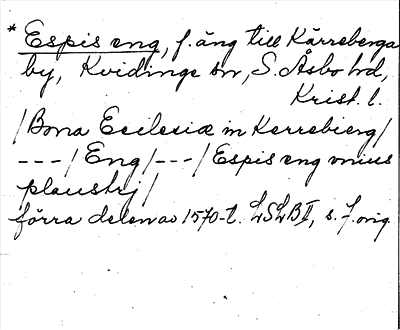 * Espis eng, f. äng till Kärreberga
by, Kvidinge sn, S. Åsbo hd,
Krist. l.
/Bona Ecilesiæ in Kerrebierg/
---/Eng/---/Espis eng vnius
plaustrj/
förra delen av 1570-t. LSLB II, s. f. orig.